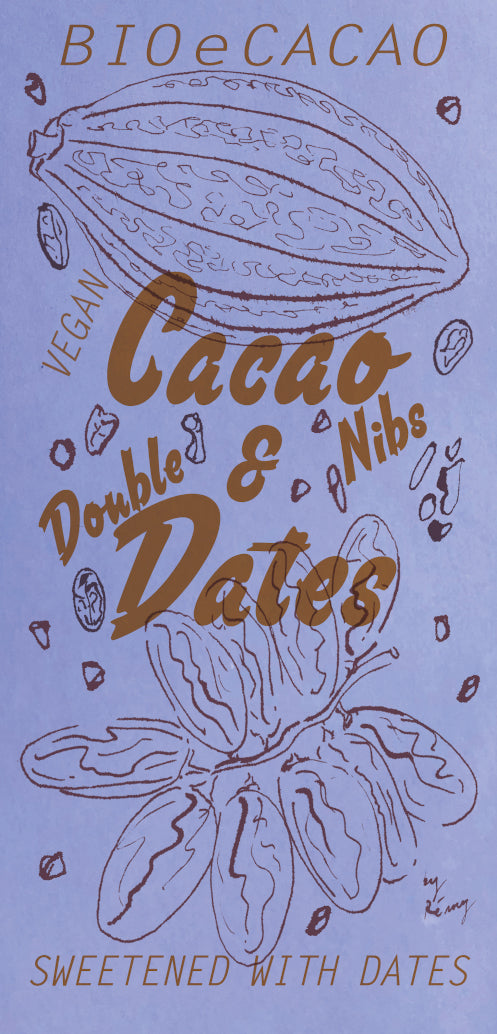 BIOeCACAO
VEGAN
Cacao
Nibs
&
Double
Dates
by
Rémy
SWEETENED WITH DATES